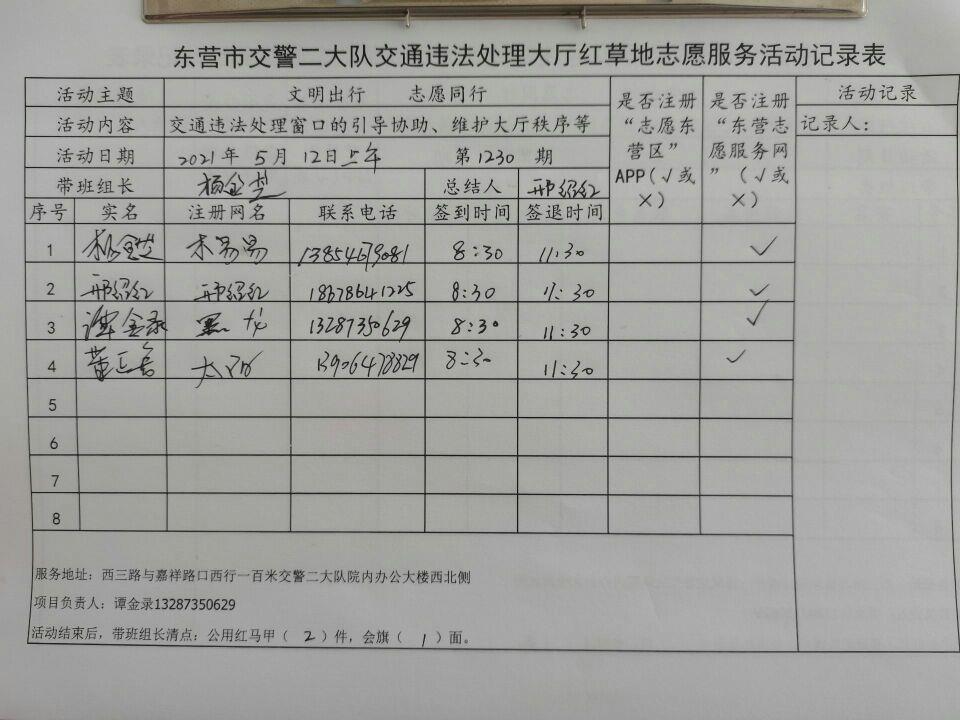 东营市交警二大队交通违法处理大厅红草地志愿服务活动记录表
活动主题 文明出行 志愿同行 是否注册“志愿东营区”APP(√或×) 是否注册“东营志愿服务网”(√或×) 活动记录
活动内容 交通违法处理窗口的引导协助、维护大厅秩序等 记录人:
活动日期 2021年 5月 12日上午 第1230期
带班组长 杨金芝 总结人 邢绍红
序号 实名 注册网名 联系电话 签到时间 签退时间
1 杨金芝 木易易 13854679081 8:30 11:30 √
2 邢绍红 邢绍红 18678641225 8:30 11:30 √
3 谭金录 黑龙 13287350629 8:30 11:30 √
4 董 13906478829 8:30 11:30 √
5
6
7
8
服务地址:西三路与嘉祥路口西行一百米交警二大队院内办公大楼西北侧
项目负责人:谭金录13287350629
活动结束后,带班组长清点:公用红马甲( 2 )件,会旗( 1 )面。